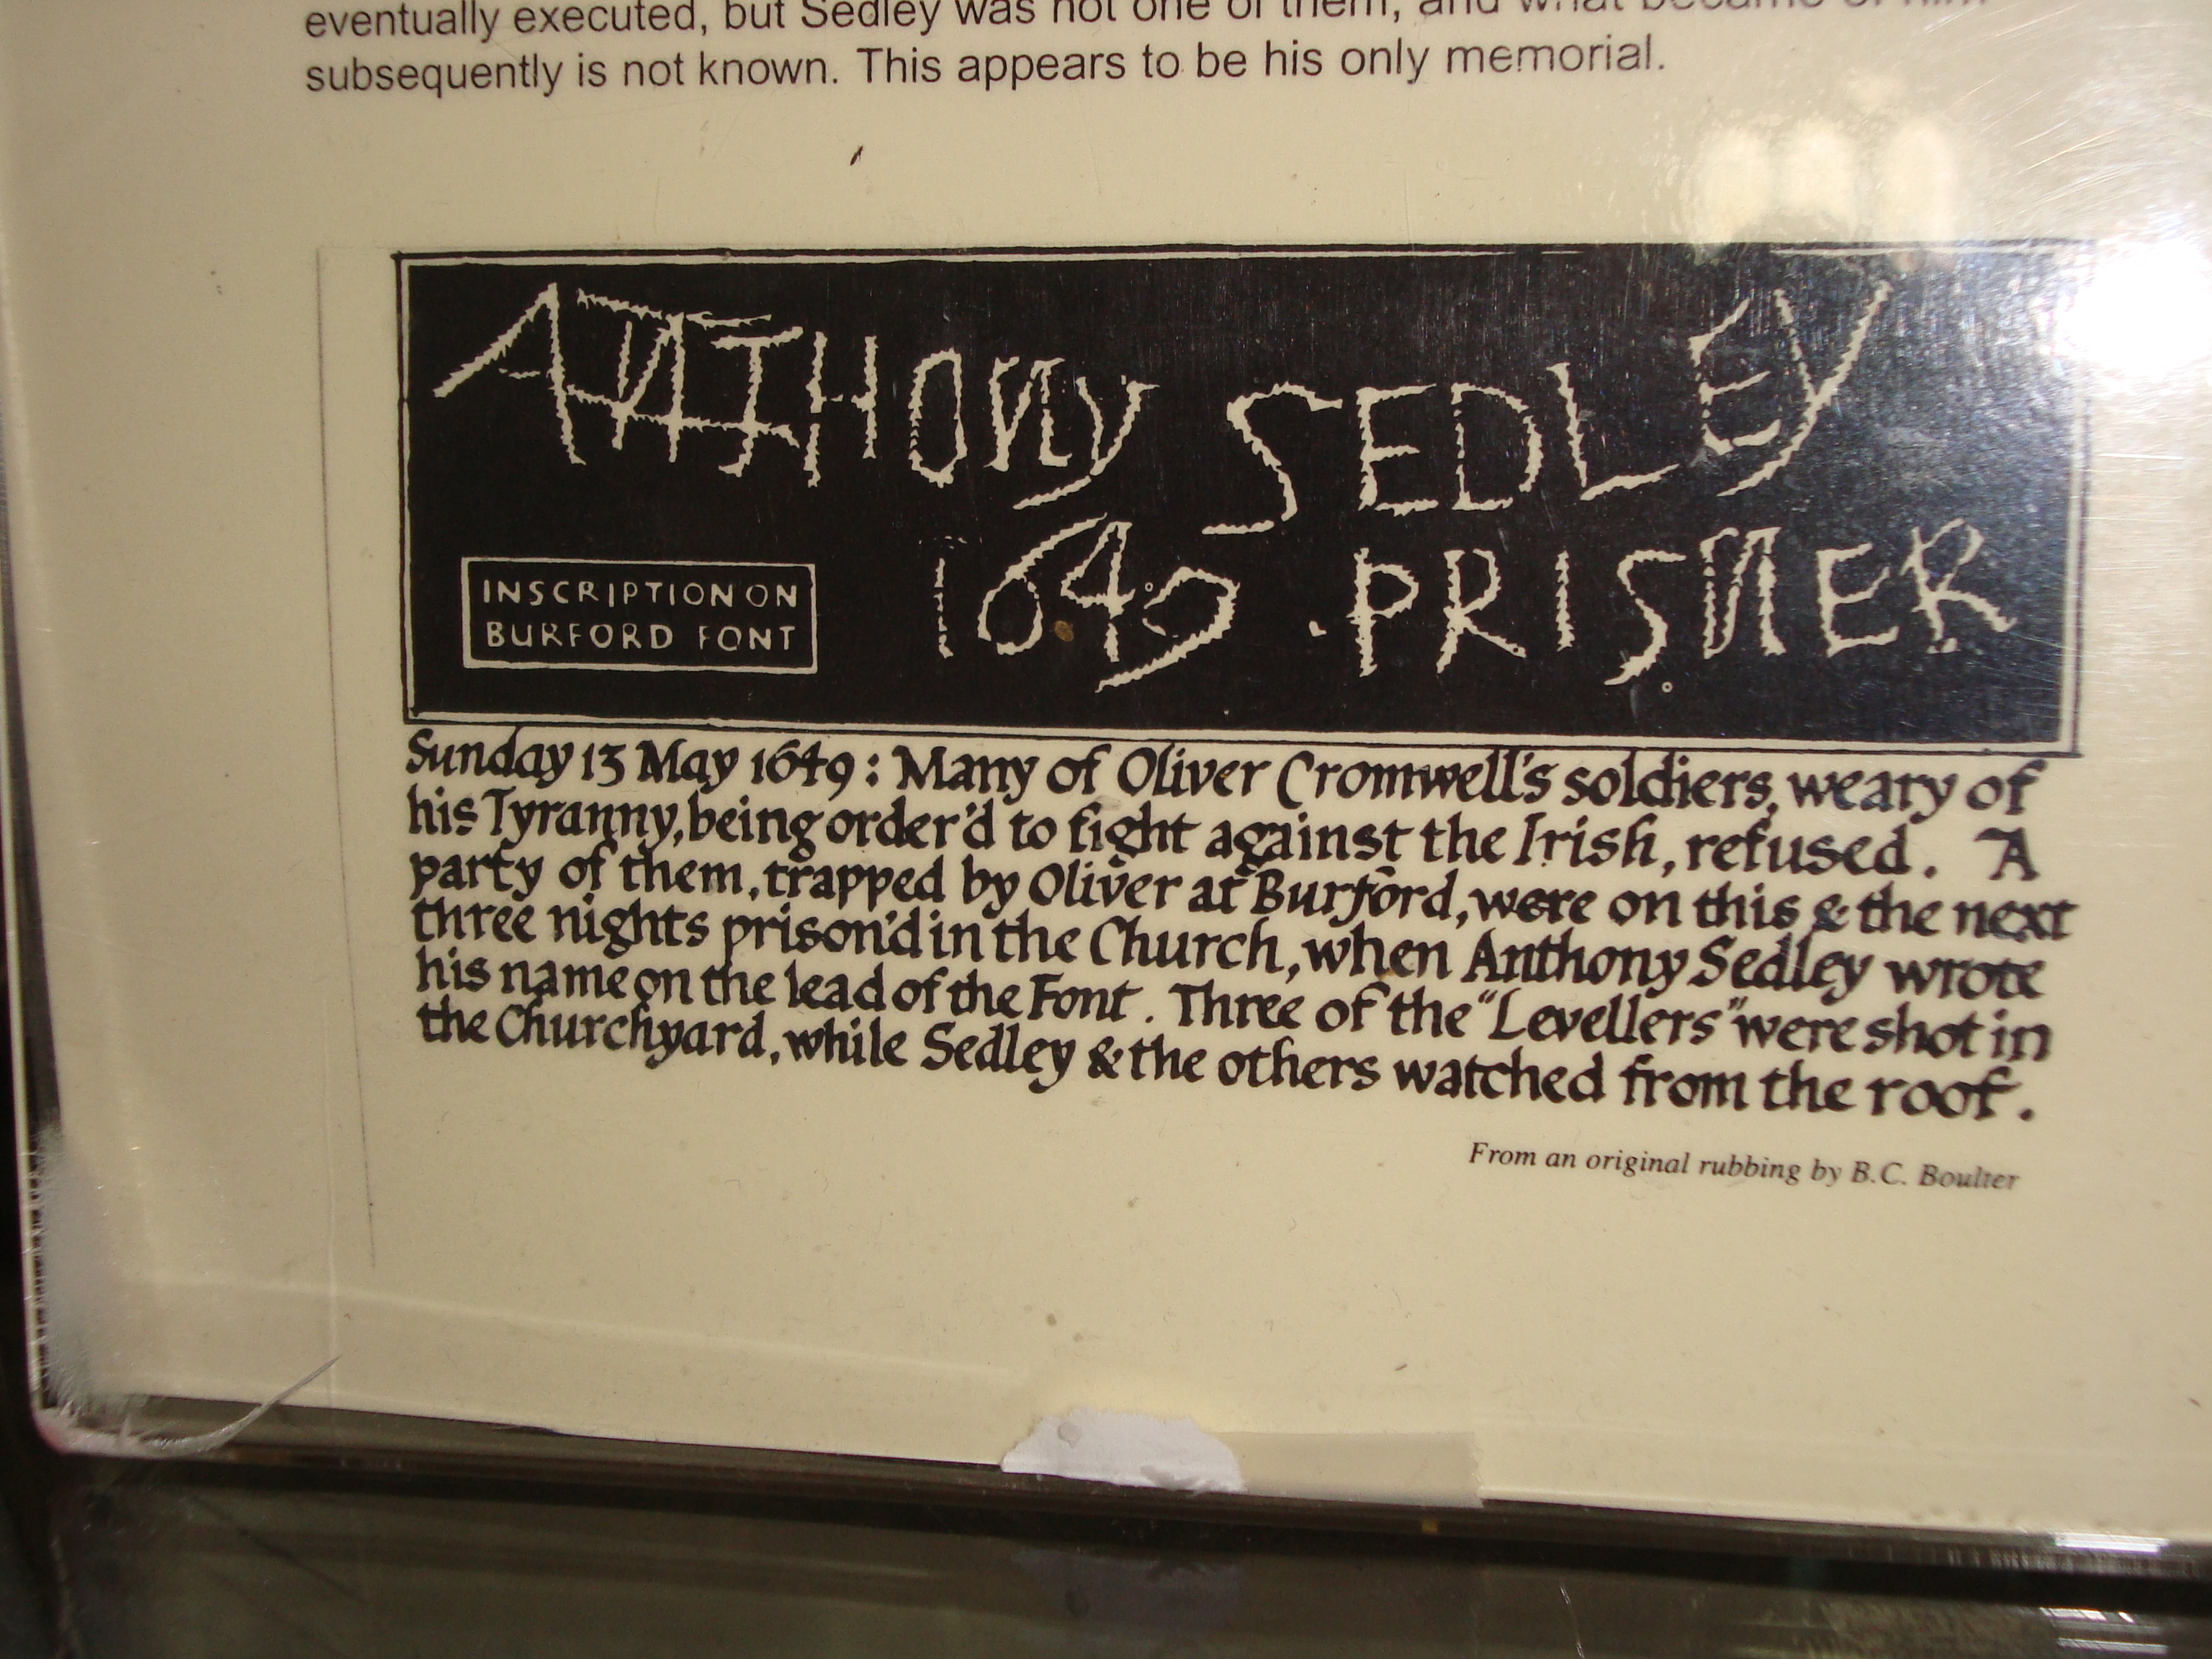 eventually executed, but Sedley was not one of them, and what became of him
subsequently is not known. This appears to be his only memorial.
ANTHONY SEDLEY
1649 . PRISNER
INSCRIPTION ON
BURFORD FONT
Sunday 13 May 1649: Many of Oliver Cromwell's soldiers, weary of
his Tyranny, being order'd to fight against the Irish, refused. A
party of them, trapped by Oliver at Burford, were on this & the next
three nights prison'd in the Church, when Anthony Sedley wrote
his name on the lead of the Font. Three of the "Levellers" were shot in
the Churchyard, while Sedley & the others watched from the roof.
From an original rubbing by B.C. Boulter